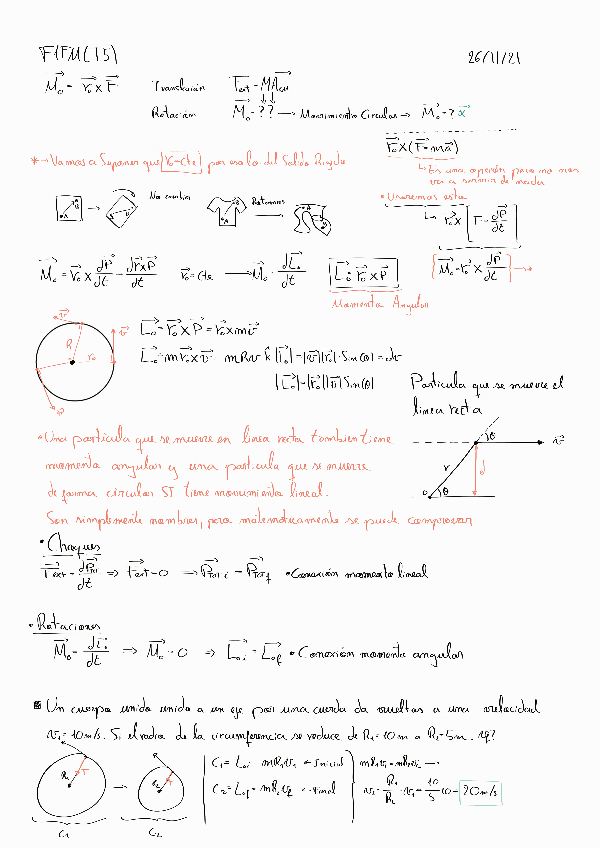 FIFM(15) 26/11/21
M⃗o = r⃗o x F⃗ Translación F⃗ext = MA⃗CM
Rotación M⃗o = ?? → Movimiento Circular → M⃗o = ? α⃗
r⃗o x (F⃗ = ma⃗)
* → Vamos a Suponer que r⃗o = cte por eso lo del Solido Rigido
↳ Es una opción pero no nos va a servir de nada
• Usaremos esta
No cambia Rotamos
↳ r⃗o x [F⃗ = dP⃗/dt]
M⃗o = r⃗o x dP⃗/dt = dr⃗xP⃗/dt r⃗o = cte → M⃗o = dL⃗o/dt L⃗o = r⃗o x P⃗ {M⃗o = r⃗o x dP⃗/dt} →
Momento Angular
L⃗o = r⃗o x P⃗ = r⃗o x mv⃗
L⃗o = m r⃗o x v⃗ mRv k̂ |L⃗o| = |v⃗||r⃗o| · Sin(θ) = dv
|L⃗o| = |r⃗o||v⃗| Sin(θ)
Particula que se mueve el
linea recta
• Una particula que se mueve en linea recta tambien tiene
momento angular y una particula que se mueve
de forma circular SI tiene movimiento lineal.
Son simplemente nombres, pero matematicamente se puede comprovar
• Choques
F⃗ext = dP⃗Tot/dt ⇒ F⃗ext = 0 → P⃗Tot i = P⃗Tot f • Conexión momento lineal
• Rotaciones
M⃗o = dL⃗o/dt ⇒ M⃗o = 0 ⇒ L⃗oi = L⃗of • Conexión momento angular
Un cuerpo unido unido a un eje por una cuerda da vueltas a una velocidad
v₁ = 10m/s. Si el radio de la circumferencia se reduce de R₁ = 10m a R₂ = 5m. v₂?
C₁ = Loi = mR₁v₁ ← Inicial mR₁v₁ = mR₂v₂ →
C₂ = Lof = mR₂v₂ ← Final v₂ = R₁/R₂ · v₁ = 10/5 · 10 = 20m/s
C₁ C₂